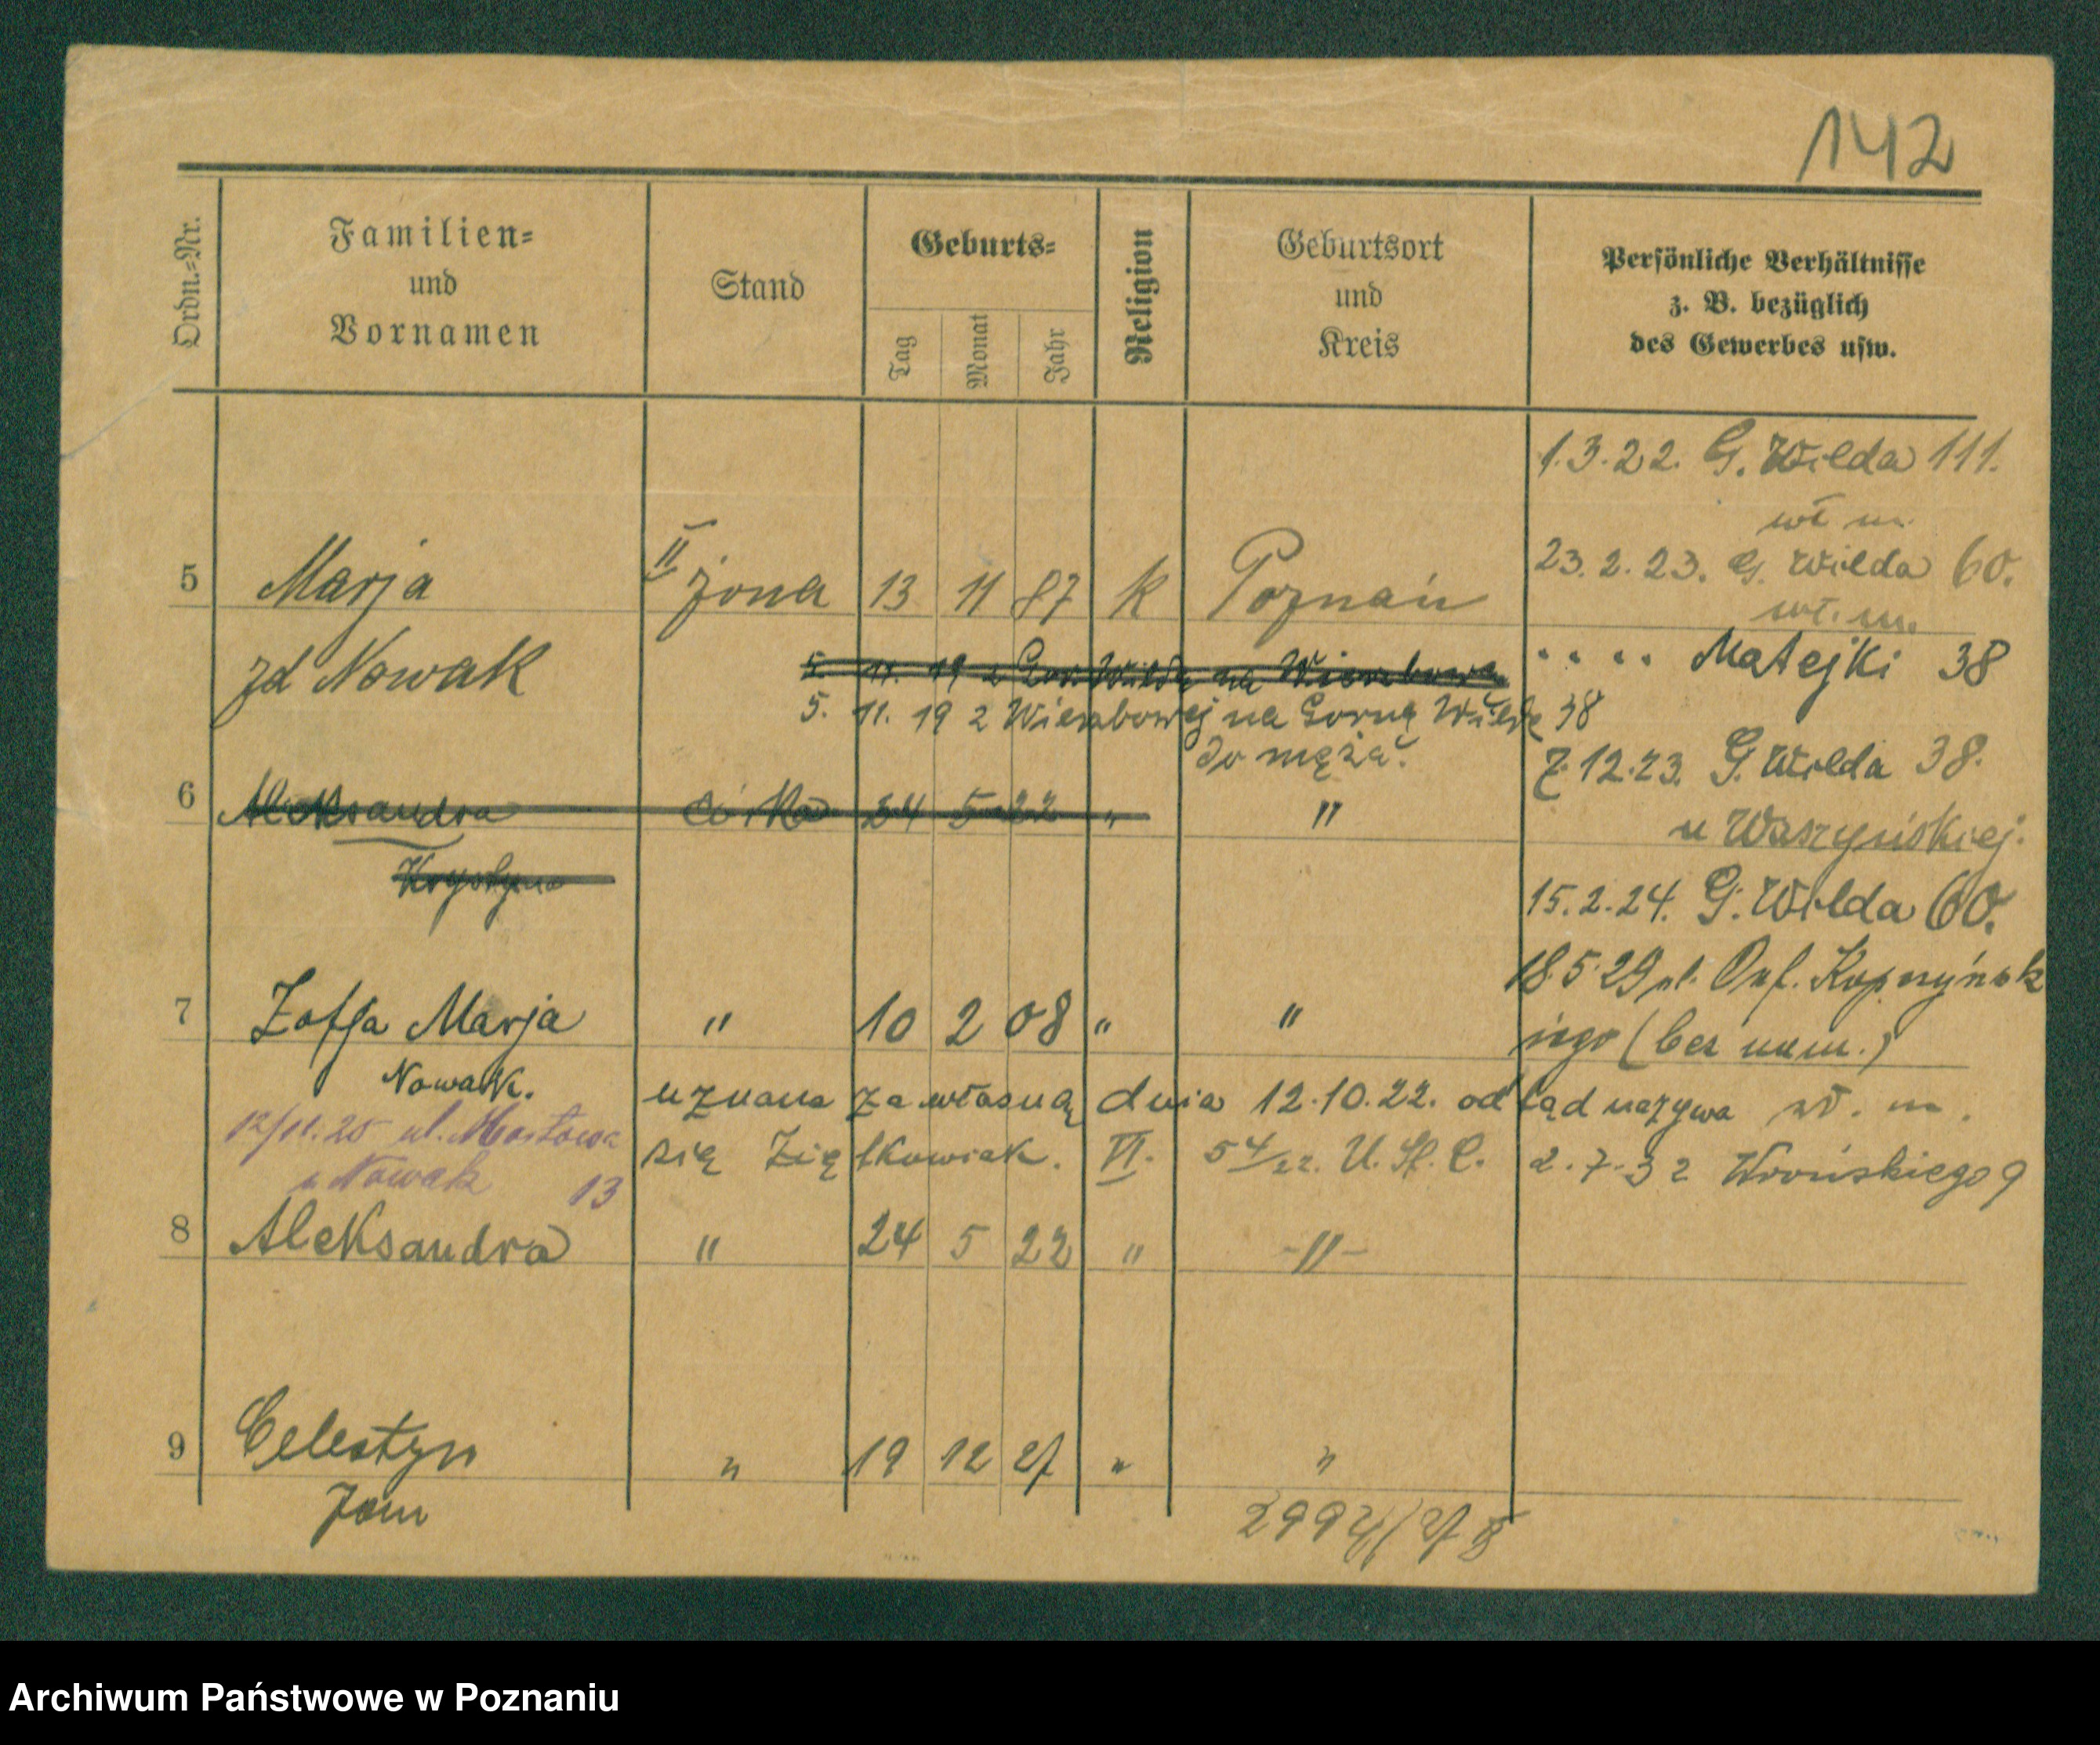 142
Ordn.=Nr.
Familien=
und
Vornamen
Stand
Geburts=
Tag
Monat
Jahr
Religion
Geburtsort
und
Kreis
Persönliche Verhältnisse
z. B. bezüglich
des Gewerbes usw.
1.3.22. G. Wilda 111.
wł m.
23.2.23. G. Wilda 60.
wł. m.
5 Marja II żona 13 11 87 K Poznań
zd Nowak
5. 11. 19 z Gor. Wildy na Wierzbową
" " " " Matejki 38
5. 11. 19 z Wierzbowej na Gorną Wildę 38
do męża.
7.12.23. G. Wilda 38.
u Waszyńskiej.
6 Aleksandra córka 24 5 22 " "
Krystyna
15.2.24. G. Wilda 60.
18.5.29 ul.
niego (bez num.)
7 Zofja Marja " 10 2 08 " "
Nowak.
uznana za własną dnia 12.10.22. odtąd nazywa wł. m.
się Ziętkowiak. VI. 54/22. U. St. C.
12/11.25 ul. Mostowa
u Nowak 13
2.7.32 Wrońskiego 9
8 Aleksandra " 24 5 22 " -"-
9 Celestyn " 19 12 27 " "
Jan